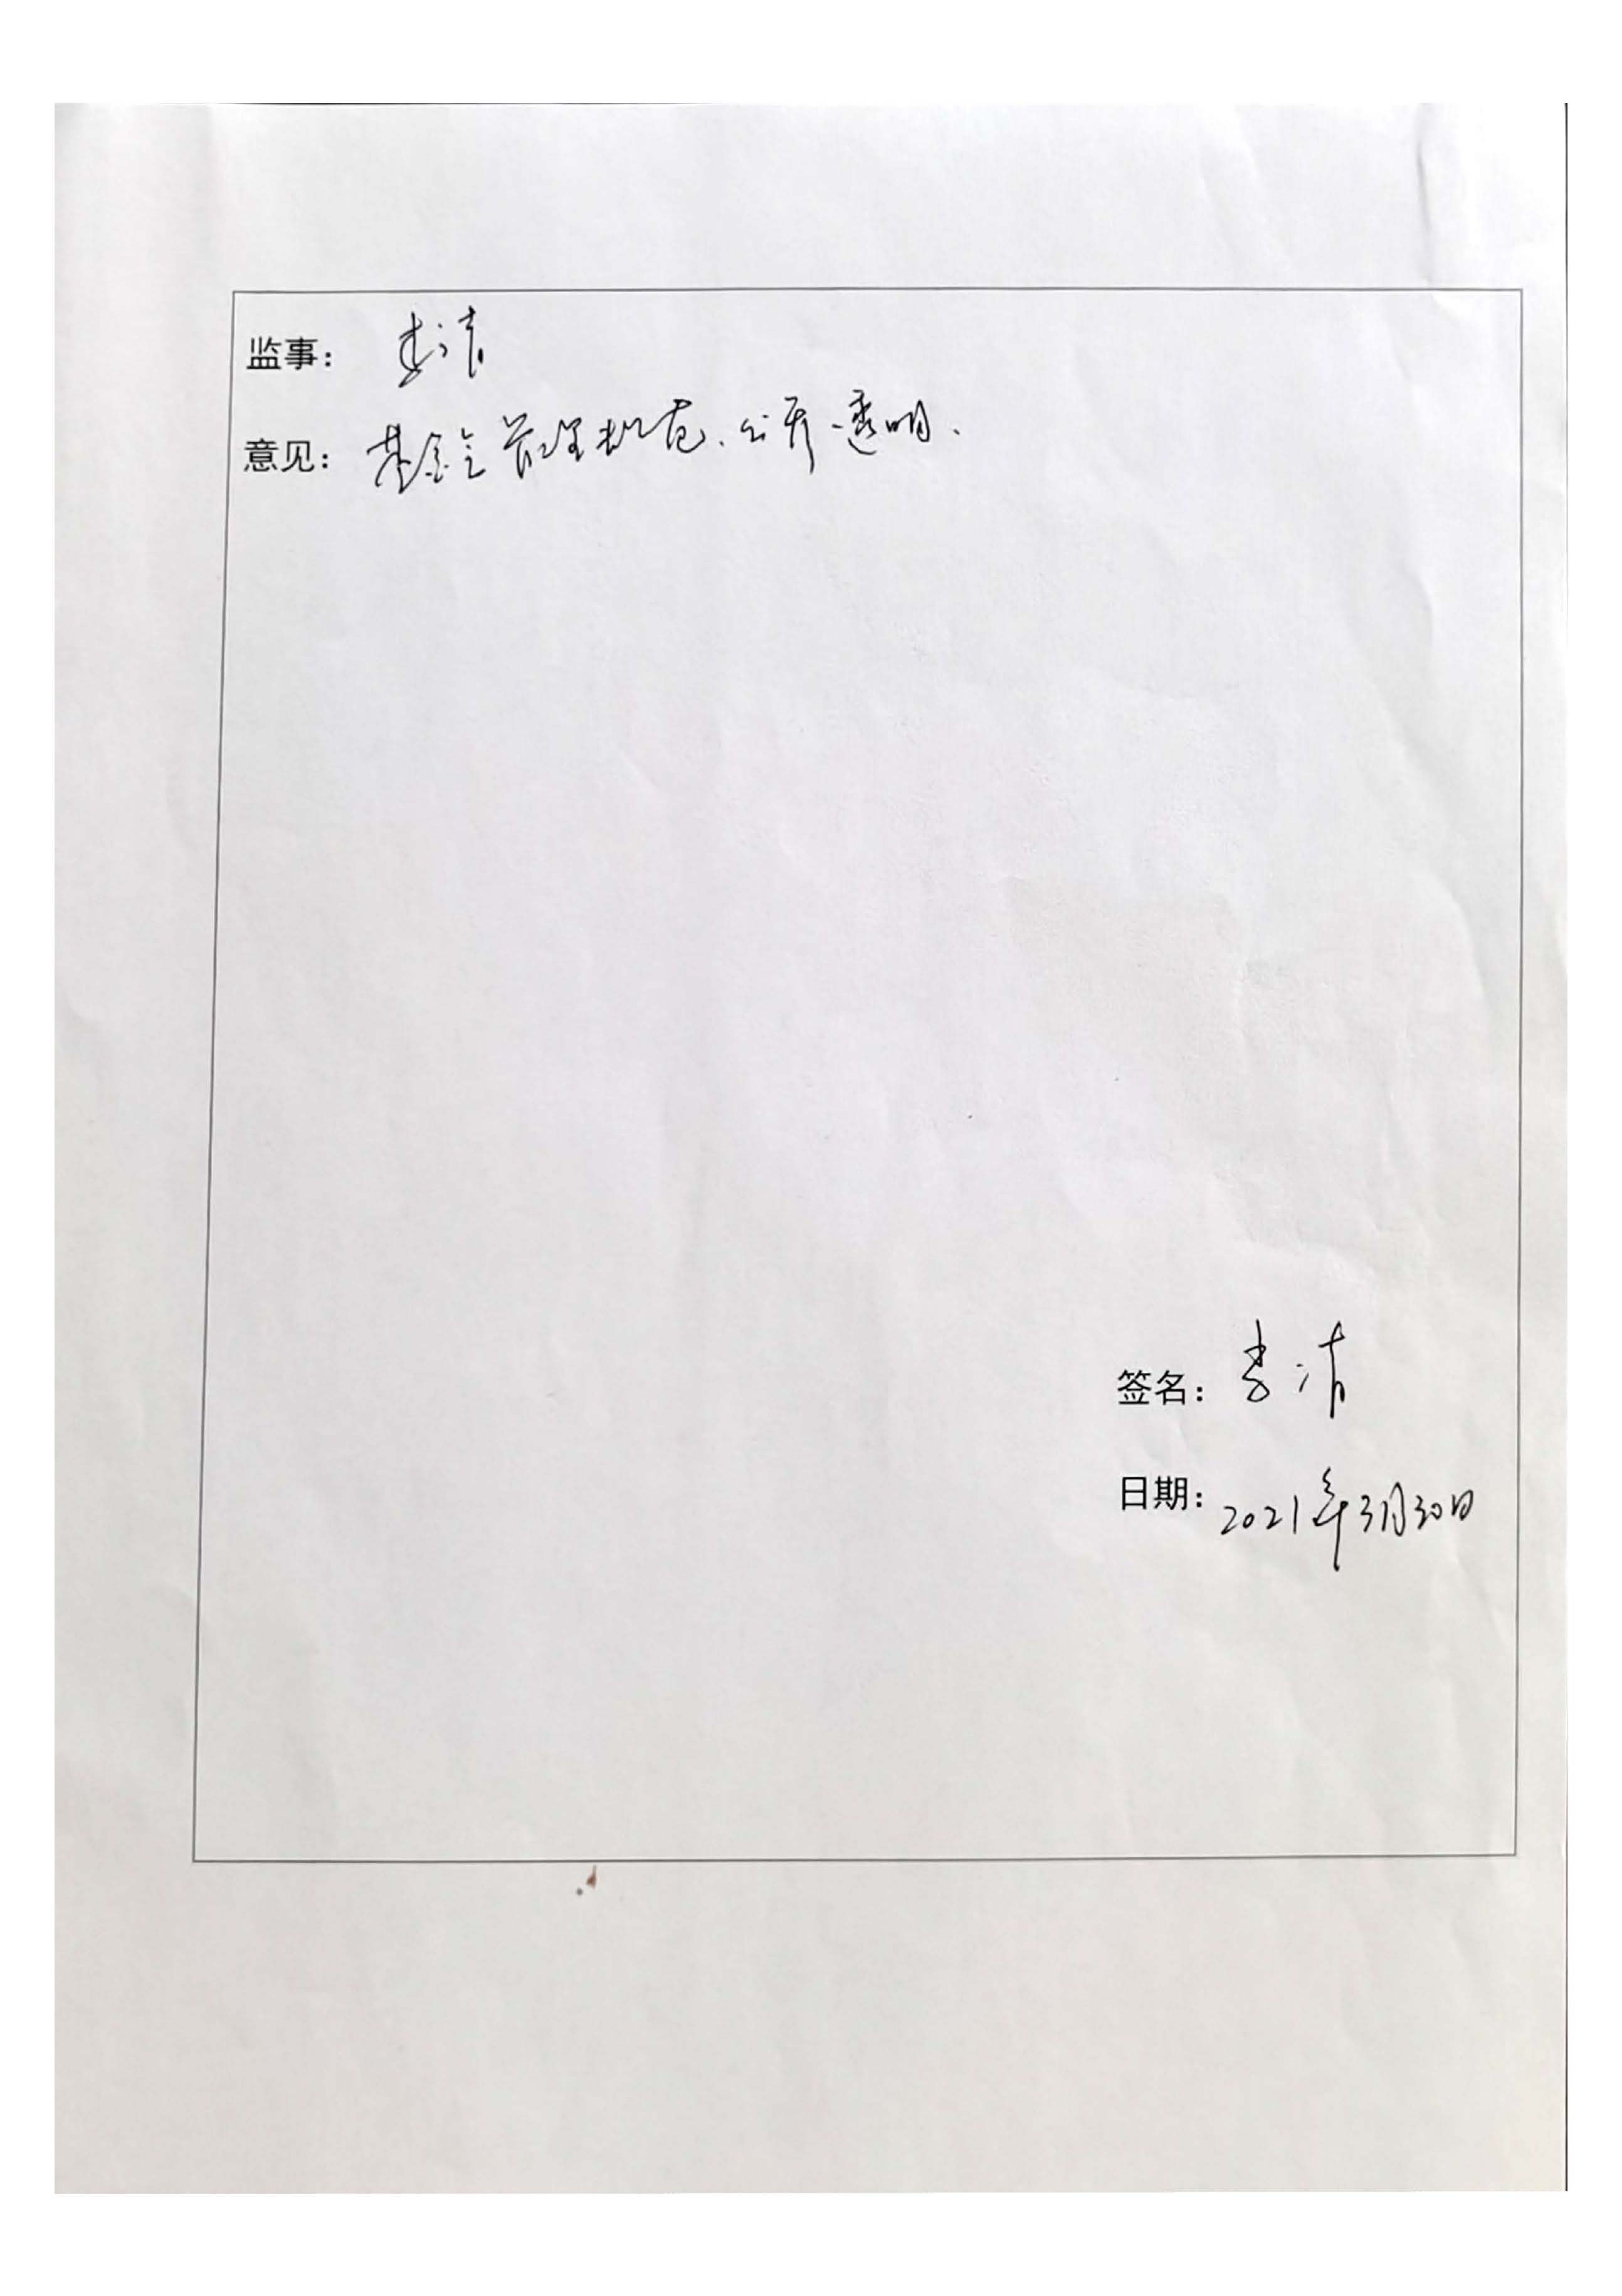 监事: 李清
意见: 基金会管理规范、公开透明.
签名: 李清
日期: 2021年3月30日